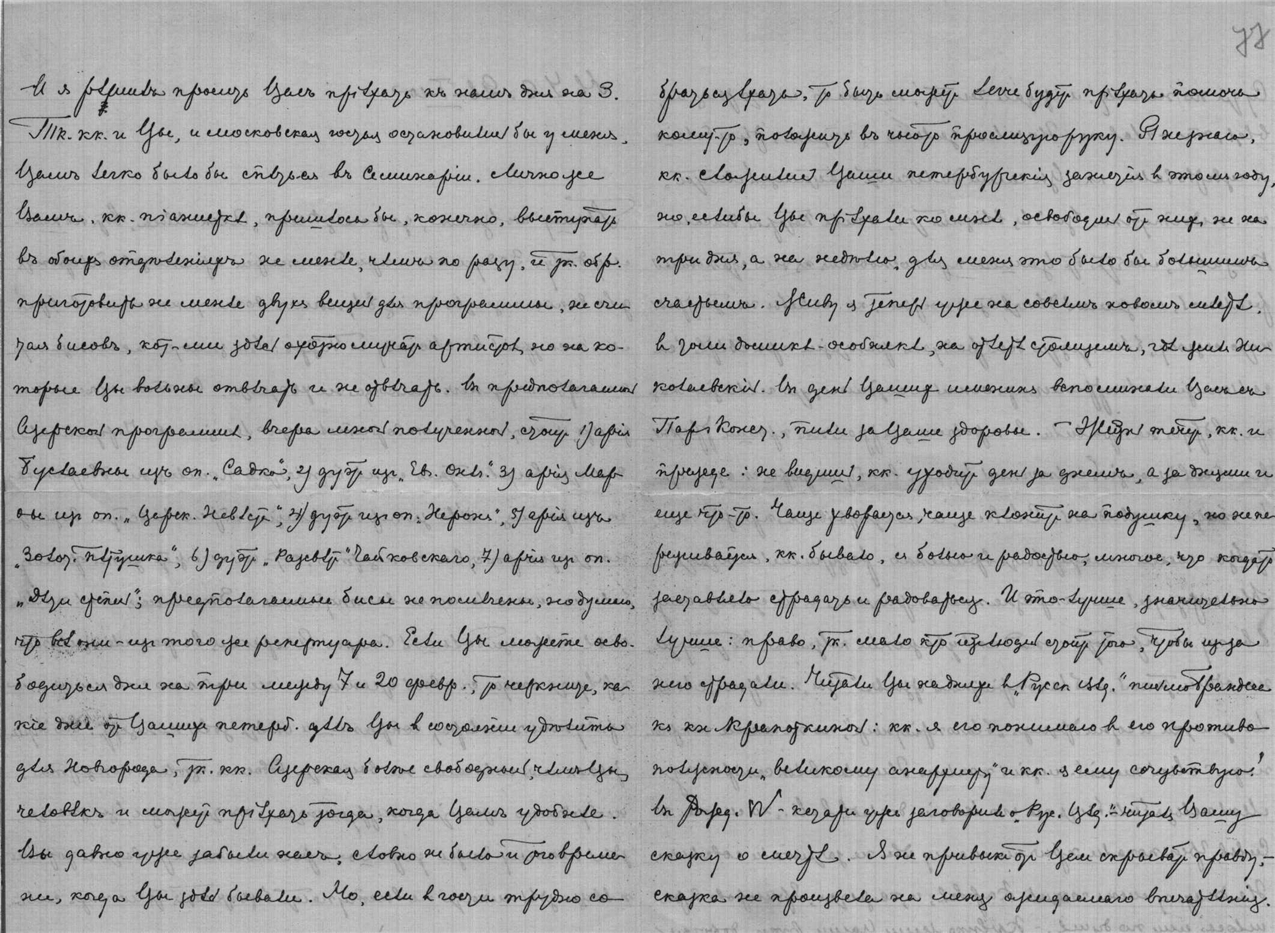 77
И я рѣшилъ просить Васъ пріѣхать къ намъ дня на 3.
Тк. кк. и Вы, и московская гостья остановились бы у меня,
Вамъ легко было бы спѣться въ Семинаріи. Лично же
Вамъ, кк. піанисткѣ, пришлось бы, конечно, выступать
въ обоихъ отдѣленіяхъ не менѣе, чѣмъ по разу, и тк. обр.
приготовить не менѣе двухъ вещей для программы, не счи
тая бисовъ, кот-ми здѣсь охотно мучатъ артистовъ, но на ко-
торые Вы вольны отвѣчать и не отвѣчать. Въ предполагаемой
Азерской программѣ, вчера мной полученной, стоитъ 1) арія
изъ оп. „Садко“, 2) дуэтъ изъ „Евг. Онѣг.“ 3) арія Мар-
ѳы из оп. „Царск. Невѣста“, 4) дуэтъ из оп. „Неронъ“, 5) арія изъ
„Золот. пѣтушка“, 6) дуэтъ „Разсвѣтъ“ Чайковскаго, 7) арія из оп.
„Дѣти степей“; предполагаемые бисы не помѣчены, но думаю,
что всѣ они – из того же репертуара. Если Вы можете осво-
бодиться дня на три между 7 и 20 февр., то черкните, ка-
кіе дни от Вашихъ петерб. дѣлъ Вы в состояніи удѣлить
для Новгорода, тк. кк. Азерская болѣе свободный, чѣмъ Вы,
человѣкъ и можетъ пріѣхать тогда, когда Вамъ удобнѣе.
Вы давно уже забыли насъ, словно не было и того време-
ни, когда Вы здѣсь бывали. Но, если в гости трудно со-
браться ѣхать, то быть можетъ легче будетъ пріѣхать помочь
кому-то, положить въ чью-то просящую руку. Я не знаю,
кк. сложились Ваши петербургскія занятія в этомъ году,
но, если бы Вы пріѣхали ко мнѣ, освободясь от нихъ, не на
три дня, а на недѣлю, для меня это было бы большимъ
счастьемъ. Живу я теперь уже на совсѣмъ новомъ мѣстѣ,
в домикѣ-особнякѣ, на столицемъ, гдѣ жили Ни-
колаевскіе. Въ день Вашихъ именинъ вспоминали Васъ съ
Пар. Конст., пили за Ваше здоровье. – Жизнь течетъ, кк. и
прежде: не видишь, кк. уходитъ день за днемъ, а за днями и
еще что-то. Чаще хвораешь, чаще клонитъ на подушку, но не пе-
реживаешь, кк. бывало, и болью и радостью, многое, что когда-то
заставляло страдать и радоваться. И это – лучше, значительно
лучше: право, тк. мало кто изъ людей стоитъ того, чтобы из за
него страдали. Читали Вы на дняхъ в „Русск. вѣд.“ письмо Брандеса
к кн Крапоткиной: кк. я его понимаю в его противо-
положности „великому анархисту“ и кк. ему сочувствую!
Въ – кстати уже заговорилъ о – читалъ Вашу
сказку о мечтѣ. Я не привыкъ от Васъ скрывать правду, –
сказка не произвела на меня ожидаемаго впечатлѣнія.